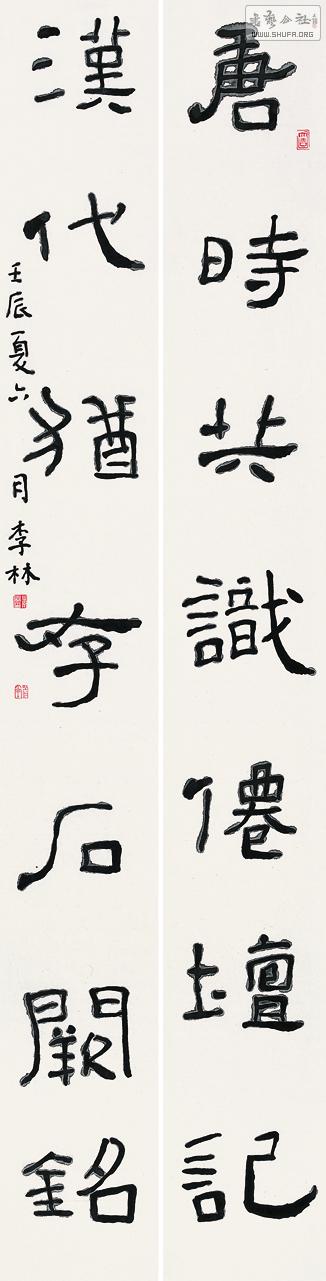 唐時共識僊壇記
漢代猶存石闕銘
壬辰夏六月李林
WWW.SHUFA.ORG